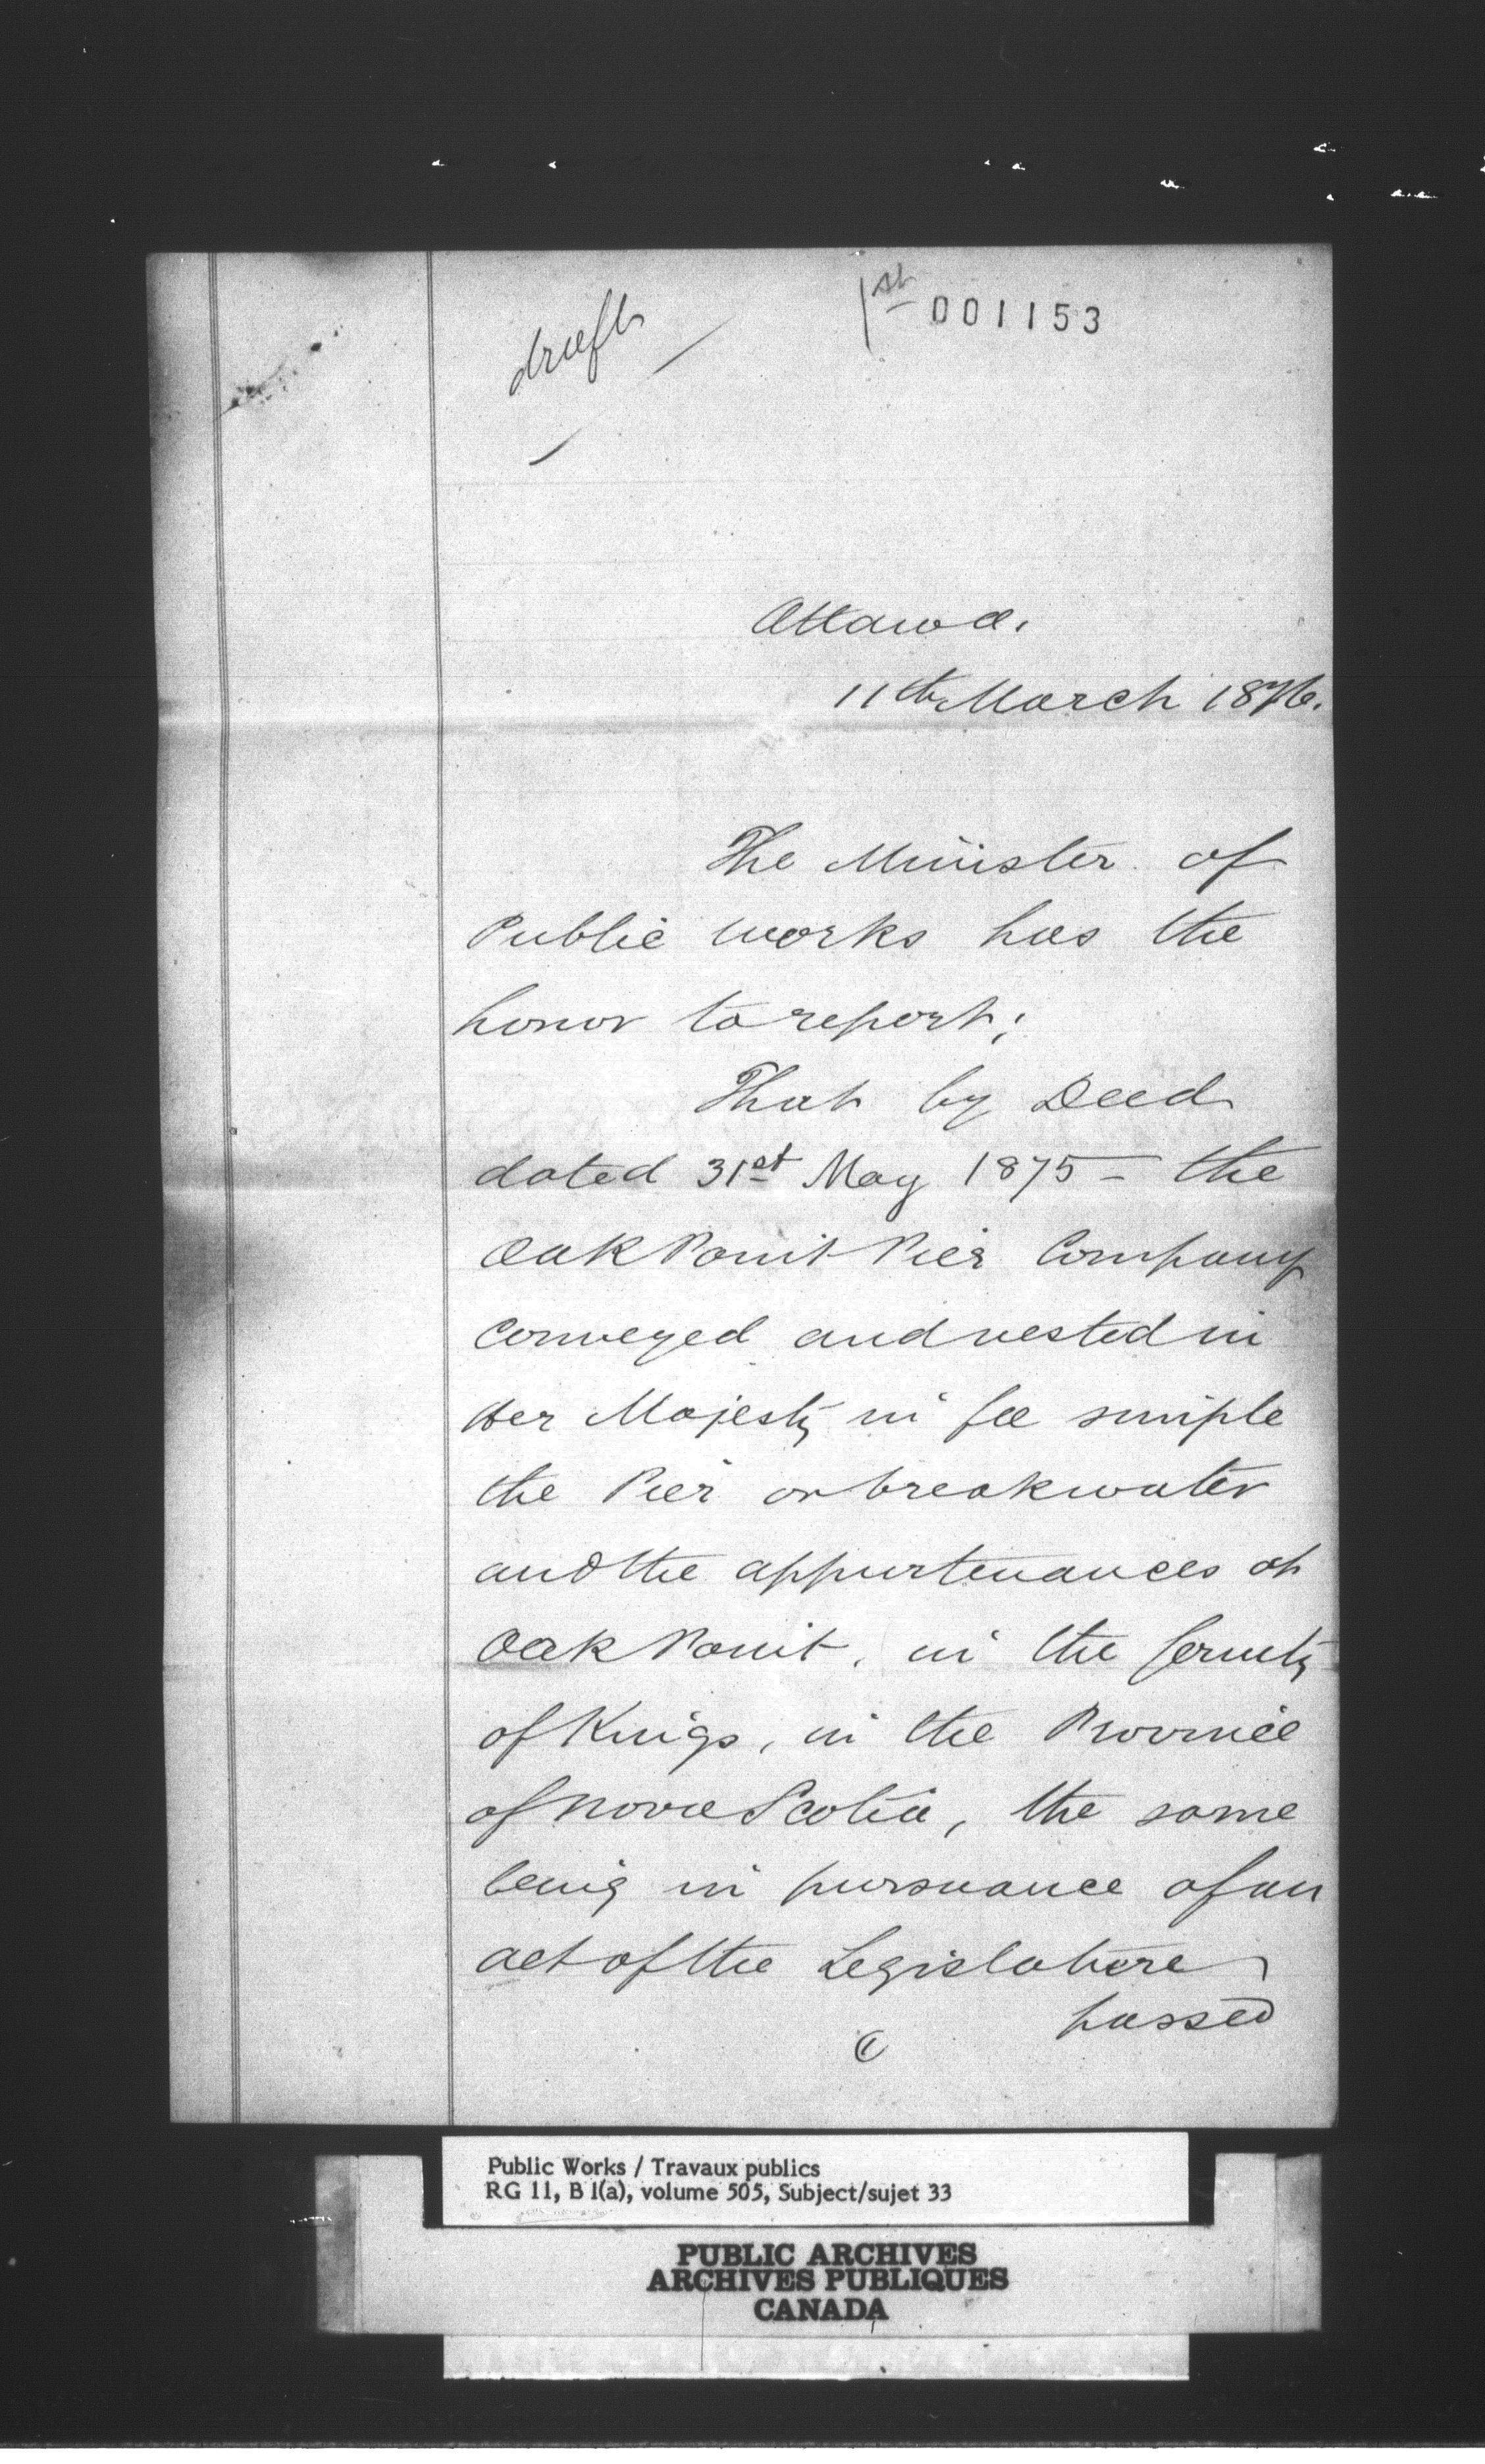 draft
1st 001153
Ottawa.
11th March 1876.
The Minister of
Public works has the
honor to report;
That by Deed
dated 31st May 1875 - the
Oak Point Pier Company
conveyed and vested in
Her Majesty in fee simple
the Pier or breakwater
and the appurtenances at
Oak Point, in the County
of Kings, in the Province
of Nova Scotia, the same
being in pursuance of an
act of the Legislature
passed
Public Works / Travaux publics
RG 11, B 1(a), volume 505, Subject/sujet 33
PUBLIC ARCHIVES
ARCHIVES PUBLIQUES
CANADA